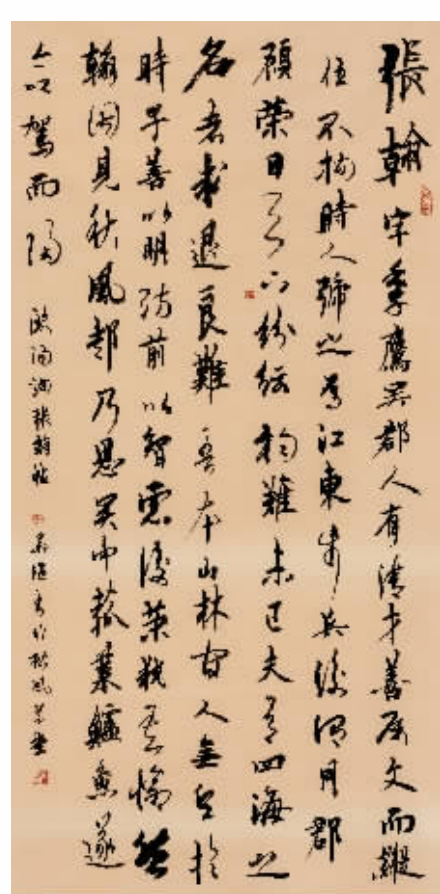 張翰字季鷹吳郡人有清才善屬文而縱
任不拘時人號之為江東步兵後謂同郡
顧榮曰天下紛紜禍難未已夫有四海之
名者求退良難吾本山林間人無望於
時子善以明防前以智慮後榮執其愴然
翰因見秋風起乃思吳中菰菜鱸魚遂
命駕而歸
歐陽詢張翰帖 書於松風草堂